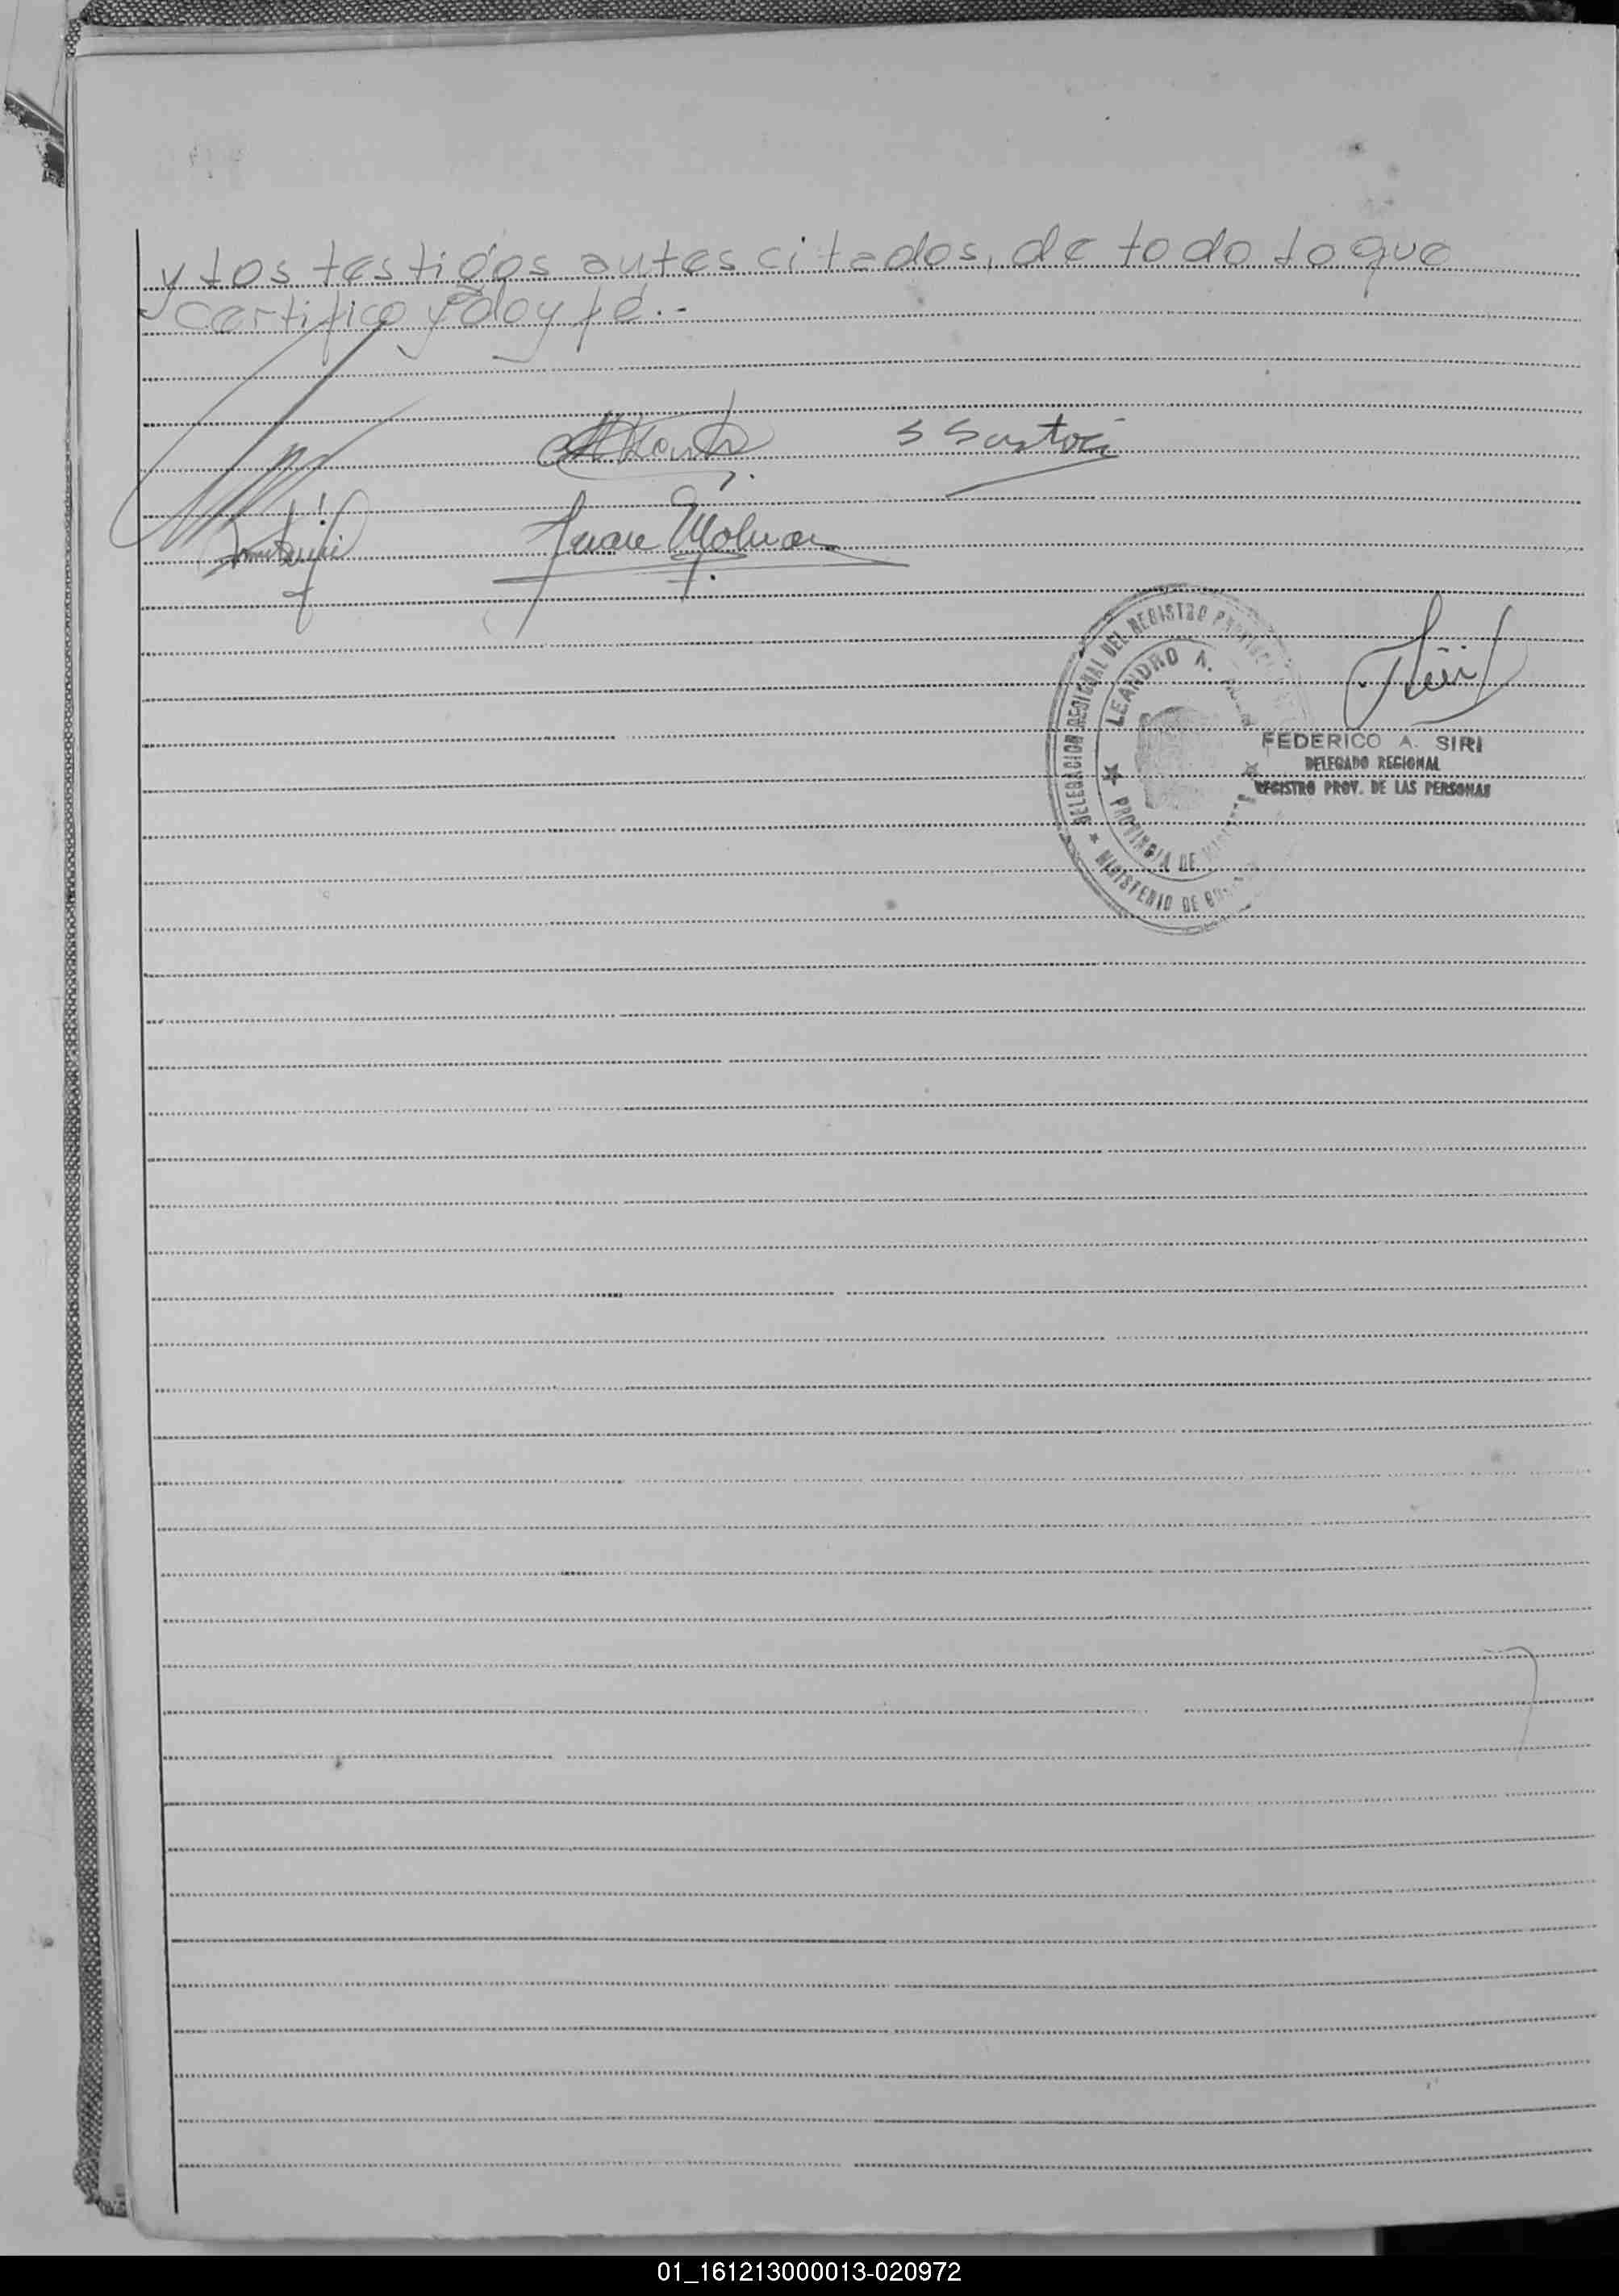 y los testigos antes citados, de todo lo que
certifico y doy fé.-
Juan Molina
DELEGACION REGIONAL DEL REGISTRO
LEANDRO N.
PROVINCIA DE
MINISTERIO DE
FEDERICO A. SIRI
DELEGADO REGIONAL
REGISTRO PROV. DE LAS PERSONAS
01_161213000013-020972